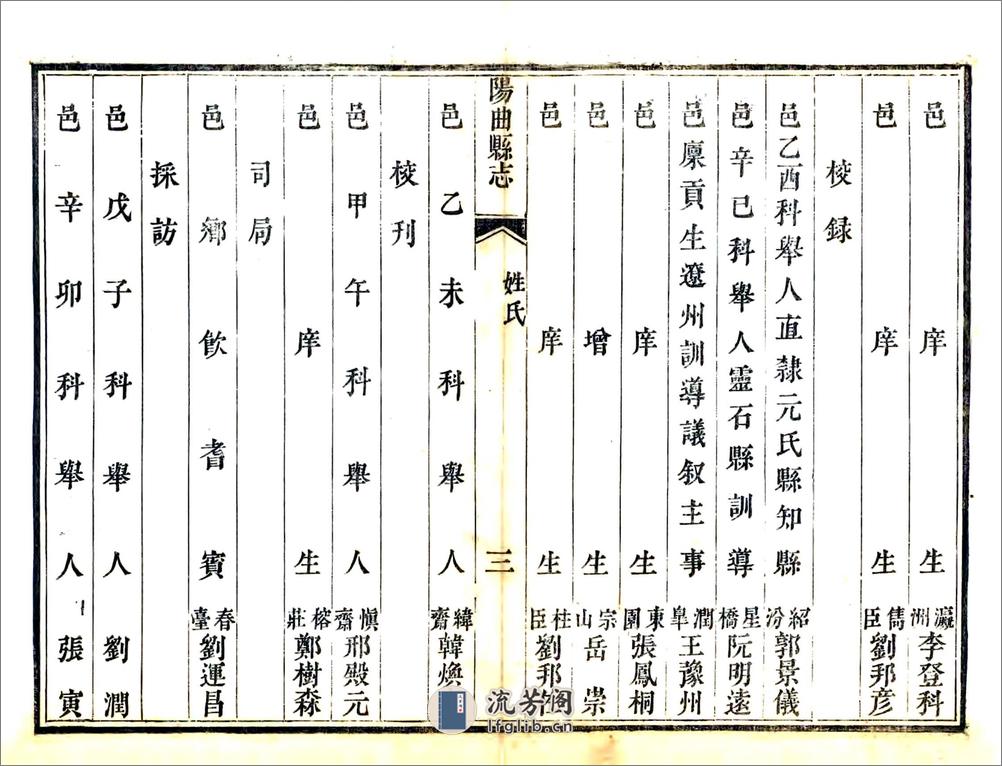 邑庠生瀛洲李登科
邑庠生雋臣劉邦彦
校録
邑乙酉科舉人直隸元氏縣知縣紹汾郭景儀
邑辛巳科舉人靈石縣訓導星橋阮明遠
邑廩貢生遼州訓導議叙主事潤臯王豫州
邑庠生東園張鳳桐
邑增生宗山岳崇
邑庠生桂臣劉邦
陽曲縣志
姓氏
三
邑乙未科舉人緯齋韓煥
校刊
邑甲午科舉人愼齋邢殿元
邑庠生榕莊鄭樹森
司局
邑鄉飲耆賓春臺劉運昌
採訪
邑戊子科舉人劉潤
邑辛卯科舉人張寅
流芳阁
lfglib.cn